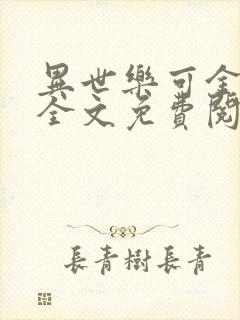 異世樂可全
全文免費閱
長青樹長青